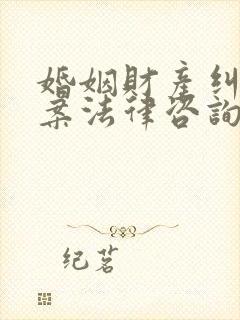 婚姻財產糾
案法律咨詢
纪茗